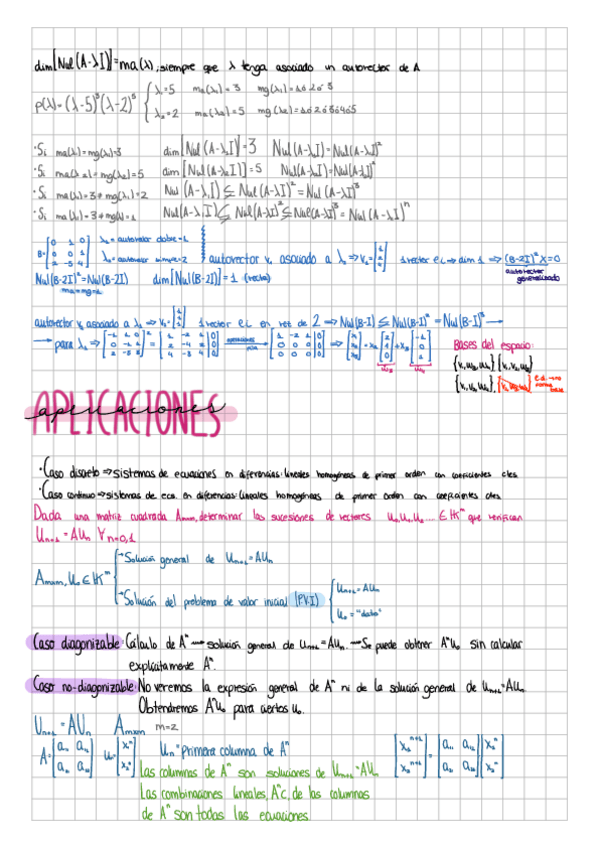 dim[Nul(A-λI)]=ma(λ), siempre que λ tenga asociado un autovector de A
p(λ)=(λ-5)³(λ-2)⁵ { λ₁=5 ma(λ₁)=3 mg(λ₁)=1ó2ó3
λ₂=2 ma(λ₂)=5 mg(λ₂)=1ó2ó3ó4ó5
·Si ma(λ₁)=mg(λ₁)=3 dim[Nul(A-λ₁I)]=3 Nul(A-λ₁I)=Nul(A-λ₁I)²
·Si ma(λ₂)=mg(λ₂)=5 dim[Nul(A-λ₂I)]=5 Nul(A-λ₂I)=Nul(A-λ₂I)²
·Si ma(λ₁)=3≠mg(λ₁)=2 Nul(A-λ₁I)⊊Nul(A-λ₁I)²=Nul(A-λ₁I)³
·Si ma(λ₁)=3≠mg(λ₁)=1
B= 0 1 0
0 0 1
2 -5 4
autovector v₁ asociado a 1 vector e.i.→dim 1 ⇒(B-2I)²X=0
autovector generalizado
Nul(B-2I)²=Nul(B-2I) dim[Nul(B-2I)]=1 (recta)
ma=mg=1
autovector v₂ asociado a 1 vector e.i. en vez de 2 ⇒Nul(B-I)⊊Nul(B-I)²=Nul(B-I)³ →
→ para
Bases del espacio:
APLICACIONES
aplicaciones
·Caso discreto⇒sistemas de ecuaciones en diferencias lineales homogéneas de primer orden con coeficientes ctes
·Caso continuo⇒sistemas de ecs. en diferencias lineales homogéneas de primer orden con coeficientes ctes
Dada una matriz cuadrada Amxm, determinar las sucesiones de vectores U₀,U₁,U₂,... ∈ 𝕂ᵐ que verifican
Uₙ₊₁=AUₙ ∀n=0,1
Amxm, U₀∈𝕂ᵐ { →Solución general de Uₙ₊₁=AUₙ
→Solución del problema de valor inicial (PVI) { Uₙ₊₁=AUₙ
U₀="dato"
Caso diagonizable: Cálculo de Aⁿ → solución general de Uₙ₊₁=AUₙ. → Se puede obtener AⁿU₀ sin calcular
explícitamente Aⁿ.
Caso no-diagonizable: No veremos la expresión general de Aⁿ ni de la solución general de Uₙ₊₁=AUₙ.
Obtendremos AⁿU₀ para ciertos U₀.
Uₙ₊₁=AUₙ Amxm m=2
Uₙ=primera columna de Aⁿ
Las columnas de Aⁿ son soluciones de Uₙ₊₁=AUₙ
Las combinaciones lineales, AⁿC, de las columnas
de Aⁿ son todas las ecuaciones